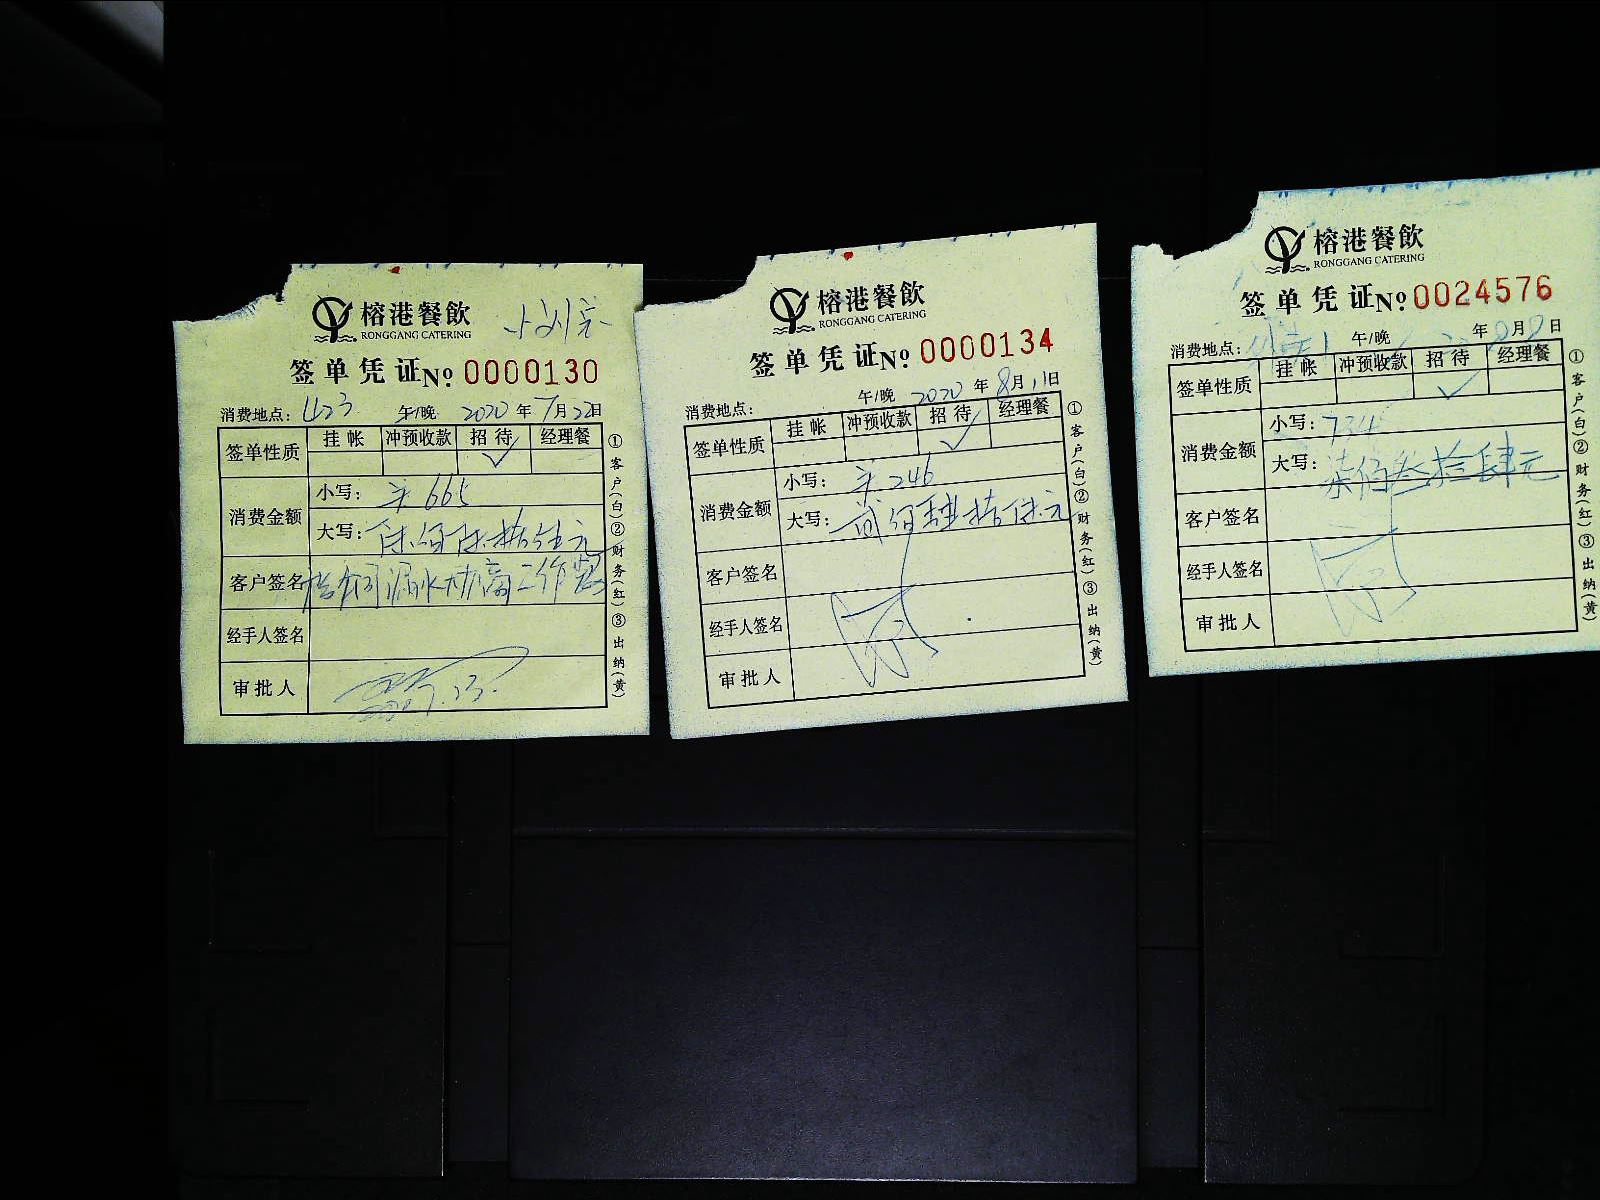 榕港餐飲
RONGGANG CATERING
签单凭证 № 0000130
消费地点: 午/晚 2020 年 7 月 22 日
签单性质 挂帐 冲预收款 招待 经理餐
✓
消费金额
小写: 羊 665
大写: 陆佰陆拾伍元
客户签名
经手人签名
审批人
①客户(白)②财务(红)③出纳(黄)
榕港餐飲
RONGGANG CATERING
签单凭证 № 0000134
消费地点: 午/晚 2020 年 8 月 11 日
签单性质 挂帐 冲预收款 招待 经理餐
✓
消费金额
小写: 羊 246
大写: 贰佰肆拾陆元
客户签名
经手人签名
审批人
①客户(白)②财务(红)③出纳(黄)
榕港餐飲
RONGGANG CATERING
签单凭证 № 0024576
消费地点: 午/晚 年 8 月 9 日
签单性质 挂帐 冲预收款 招待 经理餐
✓
消费金额
小写: 734
大写: 柒佰叁拾肆元
客户签名
经手人签名
审批人
①客户(白)②财务(红)③出纳(黄)